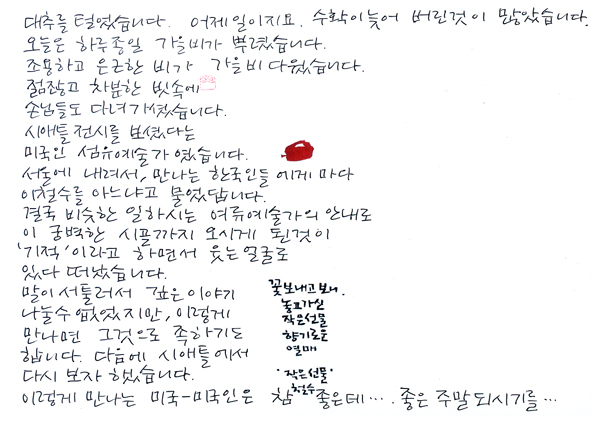 대추를 털었습니다. 어제일이지요. 수확이 늦어 버린것이 많았습니다.
오늘은 하루종일 가을비가 뿌렸습니다.
조용하고 은근한 비가 가을비 다웠습니다.
점잖고 차분한 빗속에
손님들도 다녀가셨습니다.
시애틀 전시를 보셨다는
미국인 섬유예술가 였습니다.
서울에 내려서, 만나는 한국인들에게 마다
이철수를 아느냐고 물었답니다.
결국 비슷한 일하시는 여류예술가의 안내로
이 궁벽한 시골까지 오시게 된것이
'기적'이라고 하면서 웃는 얼굴로
있다 떠났습니다.
말이 서툴러서 깊은 이야기
나눌수 없었지만, 이렇게
만나면 그것으로 족하기도
합니다. 다음에 시애틀에서
다시 보자 했습니다.
이렇게 만나는 미국-미국인은 참 좋은데…. 좋은 주말 되시기를…
꽃보내고 보니,
놓고가신
작은선물
향기로운
열매
'작은선물'
철수